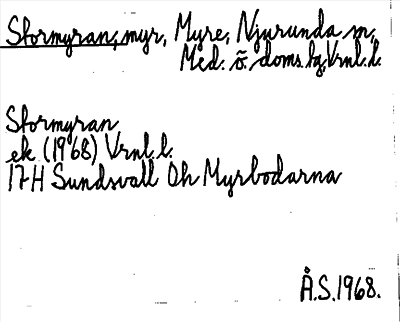 Stormyran, myr, Myre, Njurunda sn,
Med. ö. doms.lg, Vrnl.l.
Stormyran
ek (1968) Vrnl.l.
17H Sundsvall 0h Myrbodarna
Å.S.1968.